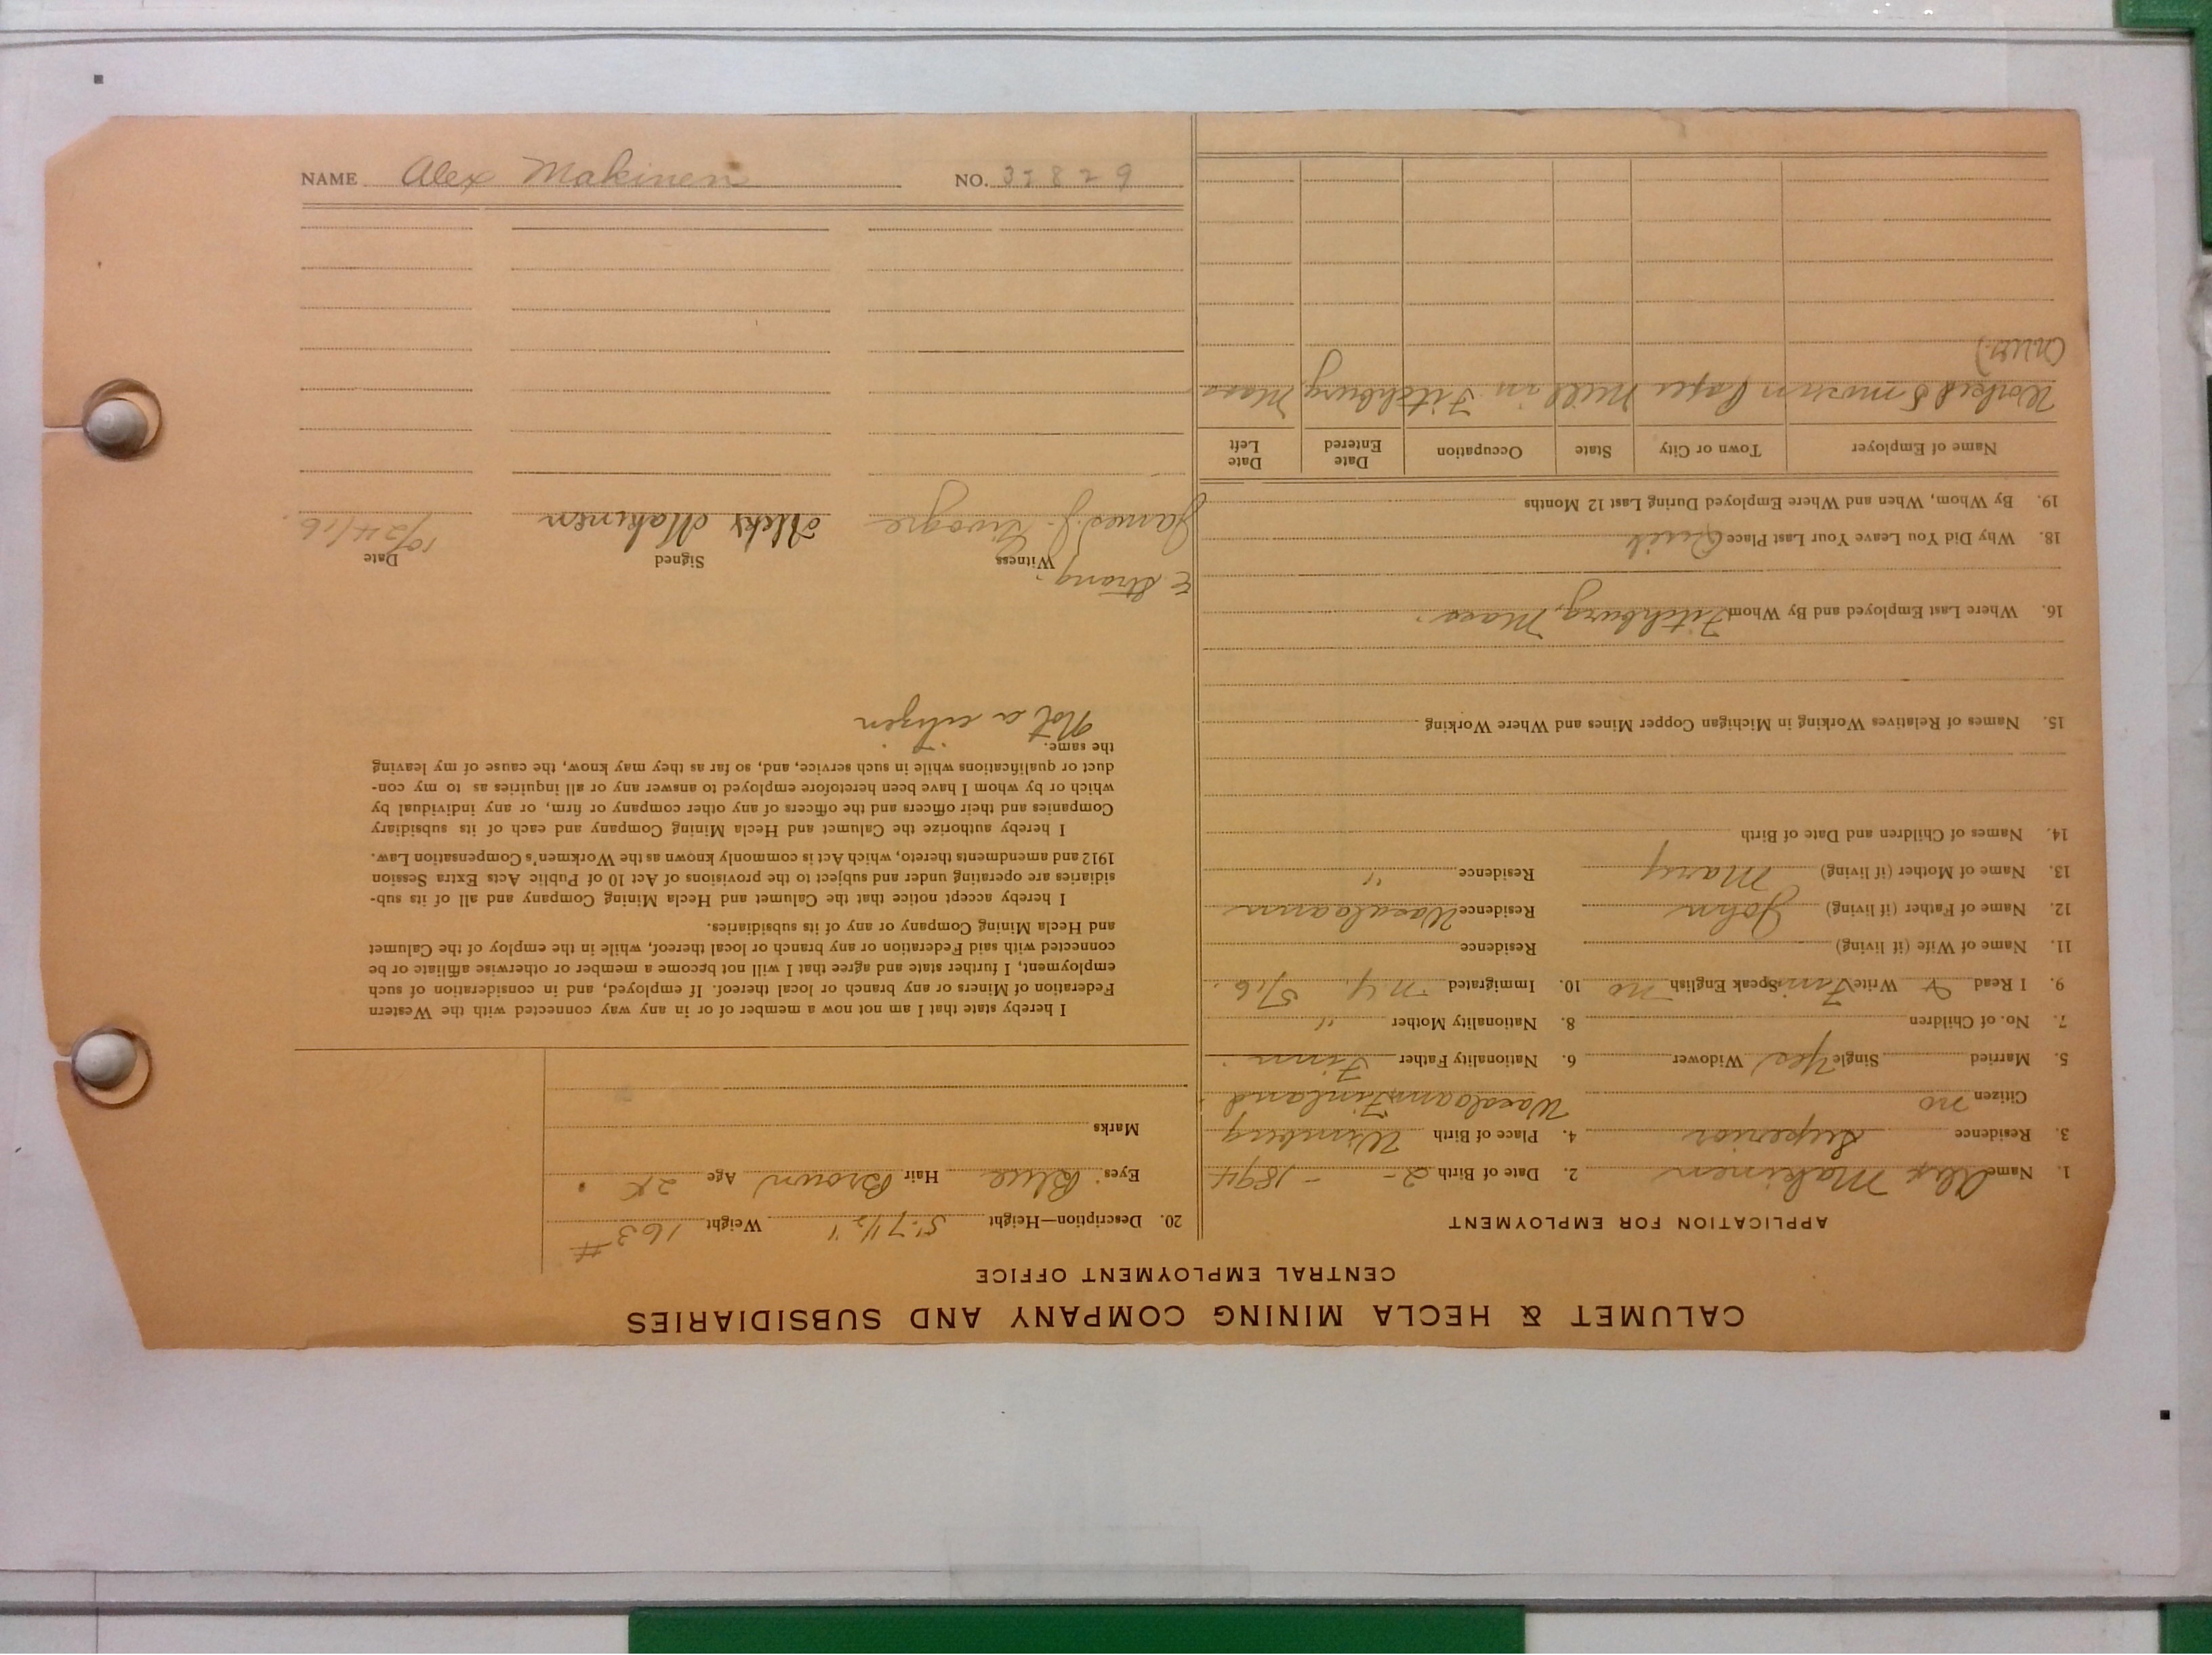 NAME Alex Makinen NO.
CALUMET & HECLA MINING COMPANY AND SUBSIDIARIES
CENTRAL EMPLOYMENT OFFICE
APPLICATION FOR EMPLOYMENT
1. Name Alex Makinen 2. Date of Birth 2- - 1894
3. Residence Superior 4. Place of Birth
Citizen no Finland
5. Married Single Yes Widower 6. Nationality Father Finn
7. No. of Children 8. Nationality Mother "
9. I Read & Write Finn Speak English no 10. Immigrated N.Y. 5/16.
11. Name of Wife (if living) Residence
12. Name of Father (if living) John Residence
13. Name of Mother (if living) Mary Residence "
14. Names of Children and Date of Birth
15. Names of Relatives Working in Michigan Copper Mines and Where Working
16. Where Last Employed and By Whom Fitchburg, Mass.
18. Why Did You Leave Your Last Place Quit
19. By Whom, When and Where Employed During Last 12 Months
Name of Employer Town or City State Occupation Date Entered Date Left
Worked 5 mos in Paper Mill in Fitchburg Mass
20. Description—Height 5'-7 1/2" Weight 163 #
Eyes Blue Hair Brown Age
Marks
I hereby state that I am not now a member of or in any way connected with the Western
Federation of Miners or any branch or local thereof. If employed, and in consideration of such
employment, I further state and agree that I will not become a member or otherwise affiliate or be
connected with said Federation or any branch or local thereof, while in the employ of the Calumet
and Hecla Mining Company or any of its subsidiaries.
I hereby accept notice that the Calumet and Hecla Mining Company and all of its sub-
sidiaries are operating under and subject to the provisions of Act 10 of Public Acts Extra Session
1912 and amendments thereto, which Act is commonly known as the Workmen's Compensation Law.
I hereby authorize the Calumet and Hecla Mining Company and each of its subsidiary
Companies and their officers and the officers of any other company or firm, or any individual by
which or by whom I have been heretofore employed to answer any or all inquiries as to my con-
duct or qualifications while in such service, and, so far as they may know, the cause of my leaving
the same.
Not a citizen
E Strang.
Witness Signed Date
James J. Aleks Makinen 10/24/16.